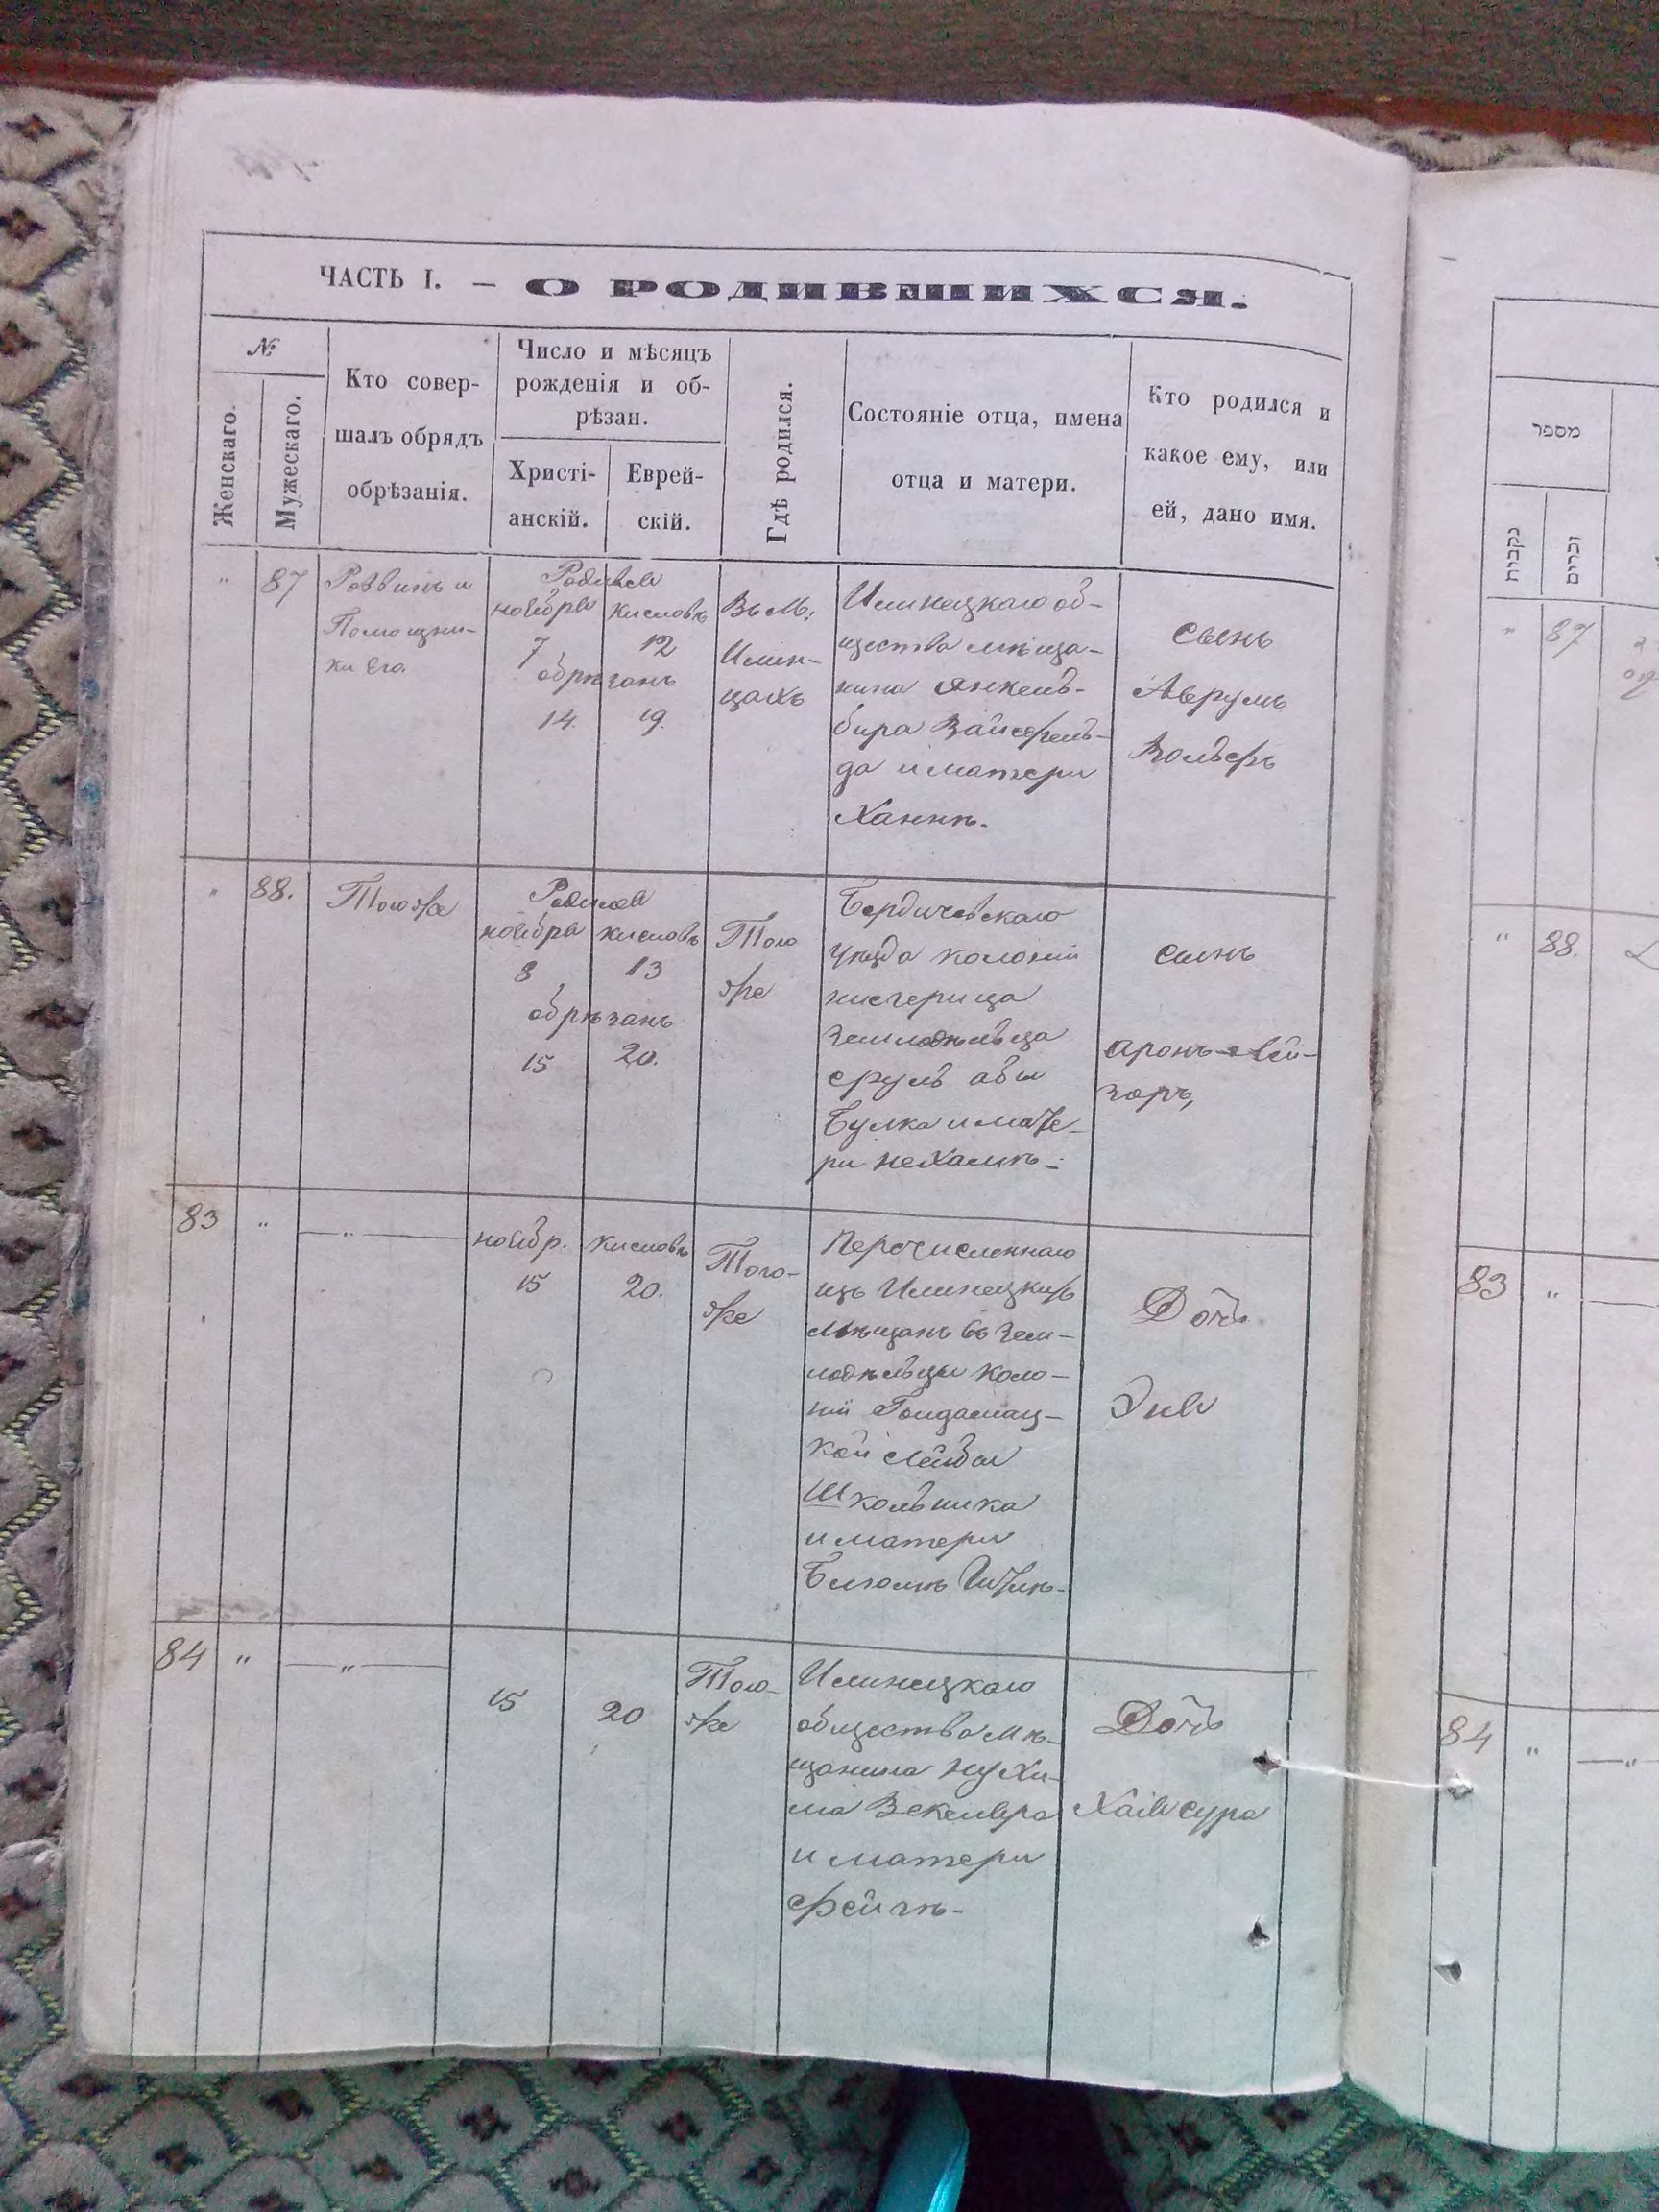 ЧАСТЬ I. — О РОДИВШИХСЯ.
№
Женскаго.
Мужескаго.
Кто совер-
шалъ обрядъ
обрѣзанія.
Число и мѣсяцъ
рожденія и об-
рѣзан.
Христі-
анскій.
Еврей-
скій.
Гдѣ родился.
Состояніе отца, имена
отца и матери.
Кто родился и
какое ему, или
ей, дано имя.
"
87
Раввинъ и
Помощни-
ки его.
Родился
ноября
7
кисловъ
12
обрѣзанъ
14.
19.
Въ м.
Илин-
цахъ
Илинецкаго об-
щества мѣща-
нина Янкель-
бира Вайсфель-
да и матери
Ханнѣ.
сынъ
Аврумъ
Вольфъ
"
88.
Того же
Родился
ноября
8
кисловъ
13
обрѣзанъ
15
20.
Того
же
Бердичевскаго
уѣзда колоніи
земледѣльца
сруль абы
Булка и мате-
ри Нехамѣ
сынъ
аронъ-лей-
зоръ,
83
"
"
ноябр.
15
кисловъ
20.
Того-
же
Перечисленнаго
изъ Илинецкихъ
мѣщанъ въ зем-
ледѣльцы коло-
ніи
кой Лейбы
Школьника
и матери
Дочь
Эня
84
"
"
15
20
Того-
же
Илинецкаго
общества мѣ-
щанина Нухи-
ма
и матери
Фейгѣ
Дочь
Хая сура
מספר
נקבות
זכרים
"
87
"
88.
83
"
84
"
"